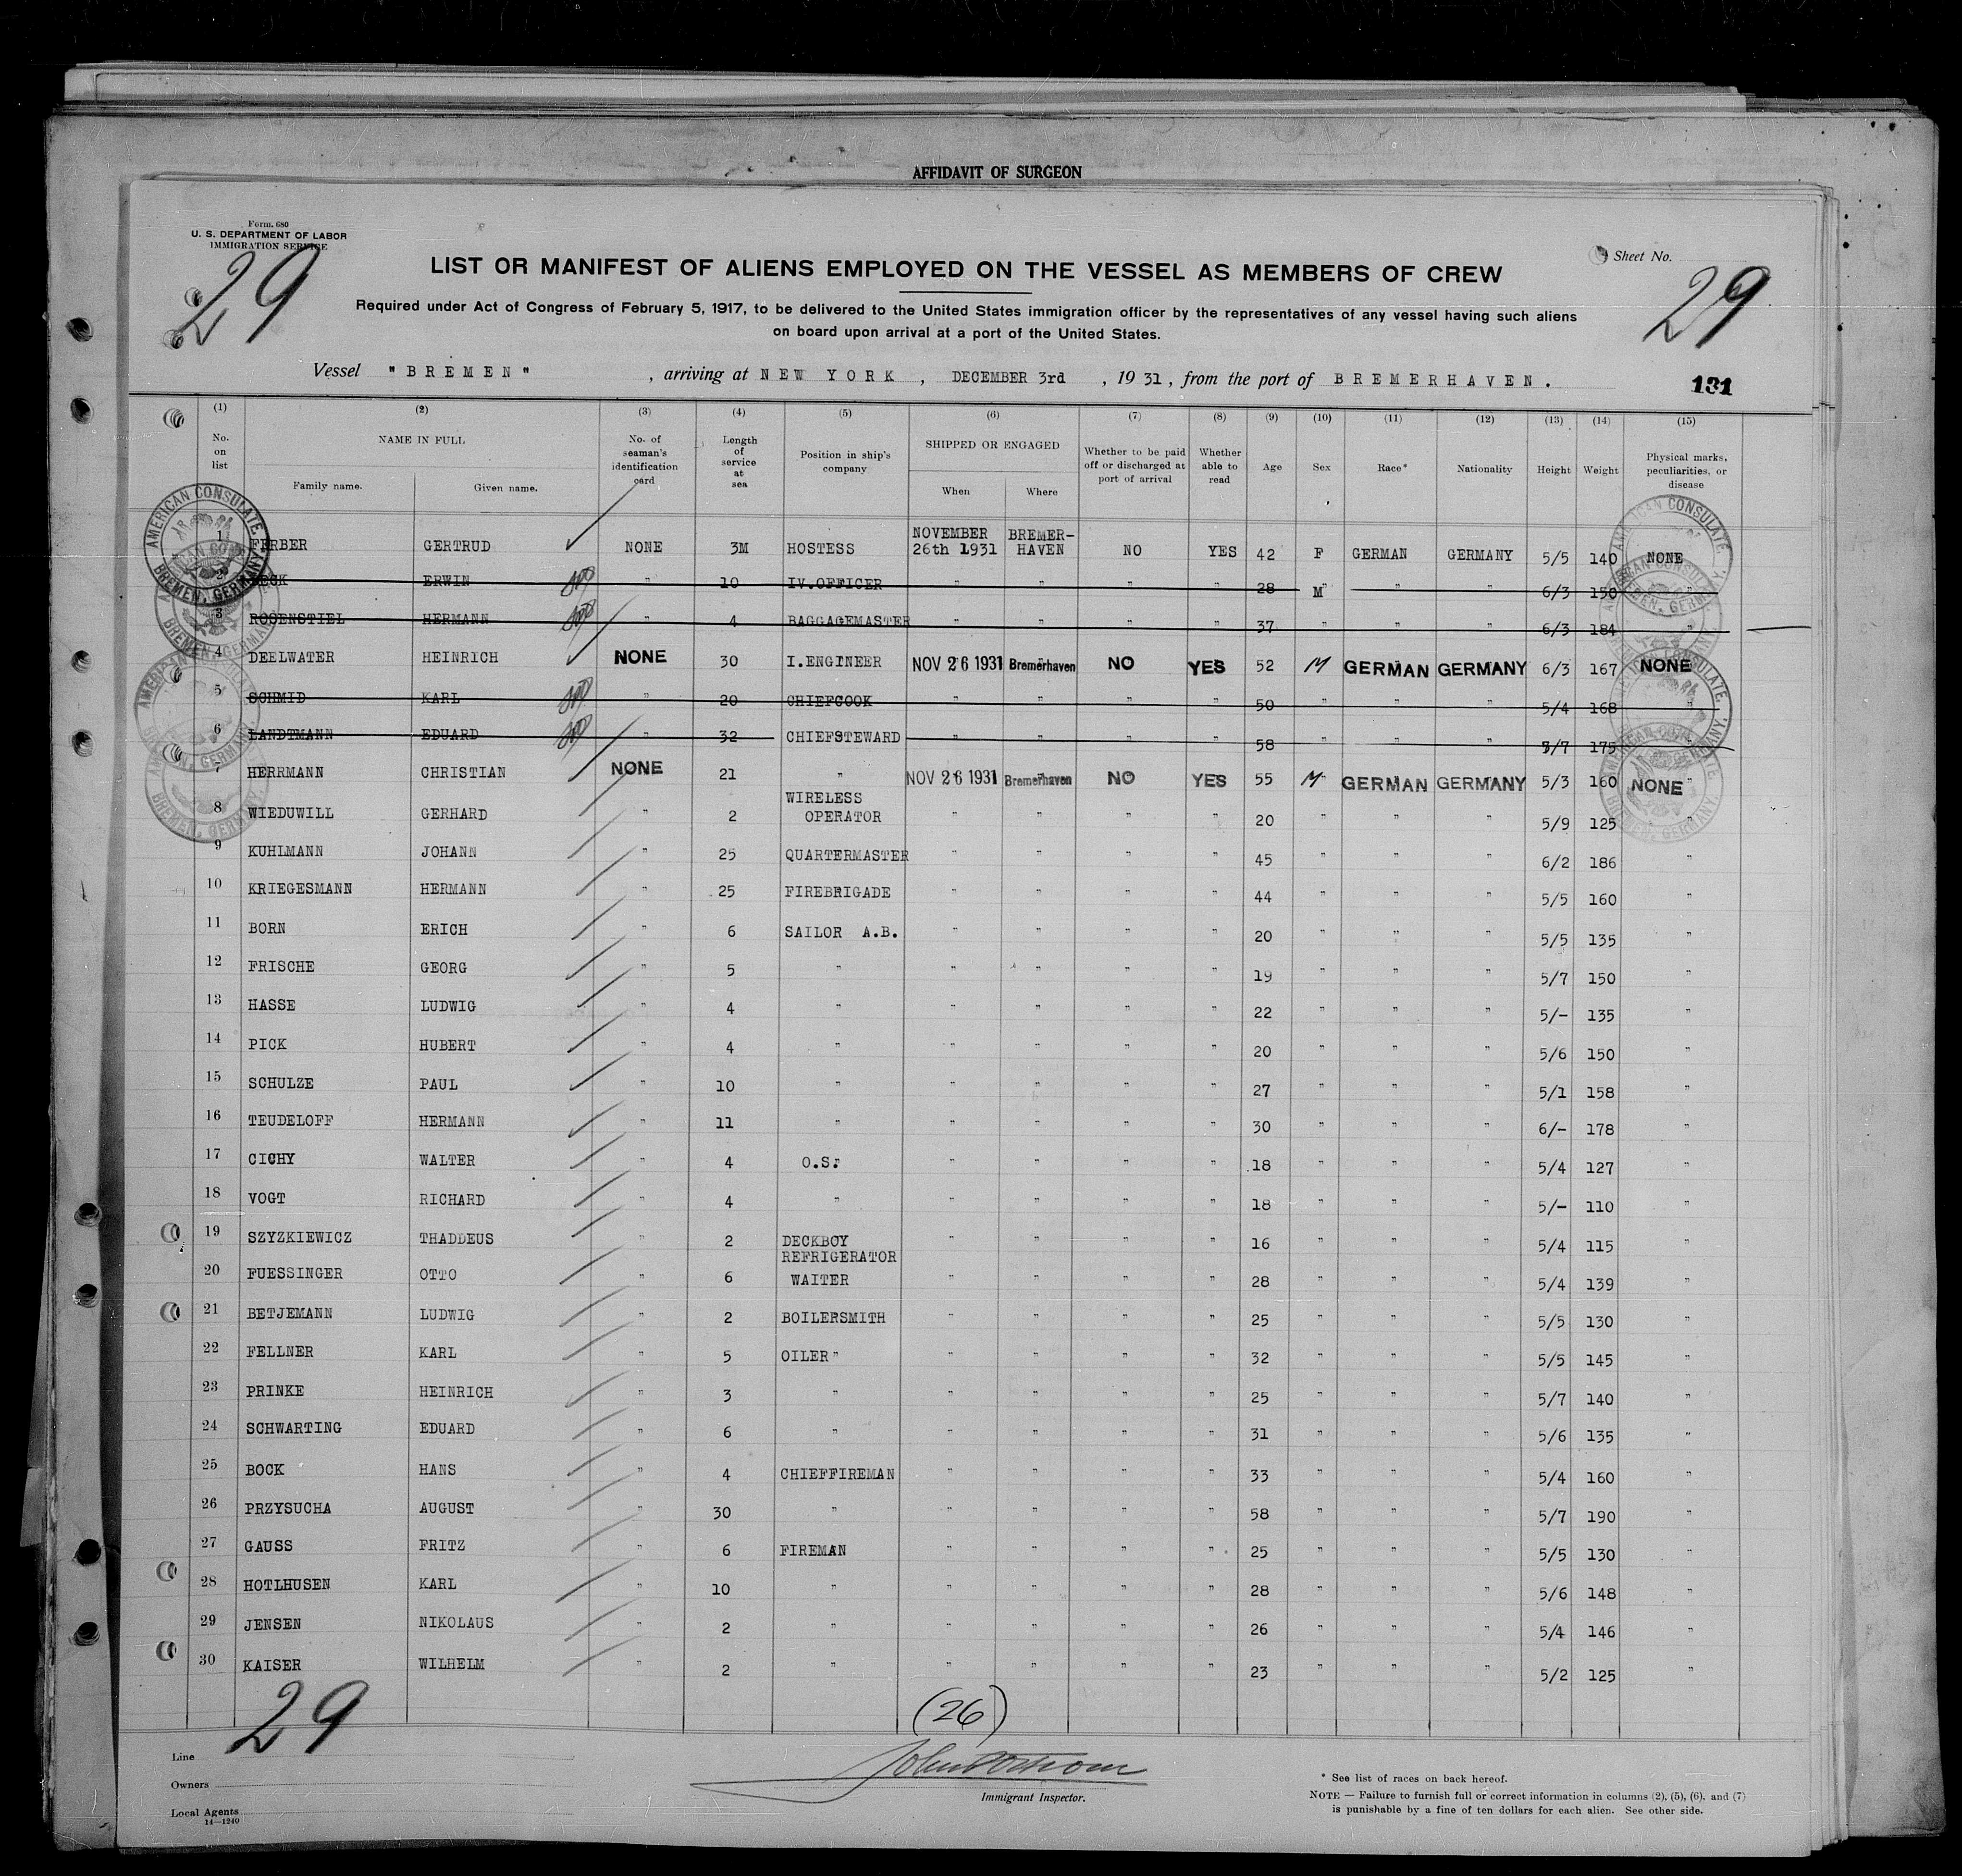 AFFIDAVIT OF SURGEON
Form. 680
U. S. DEPARTMENT OF LABOR
IMMIGRATION SERVICE
29
Sheet No.
29
LIST OR MANIFEST OF ALIENS EMPLOYED ON THE VESSEL AS MEMBERS OF CREW
Required under Act of Congress of February 5, 1917, to be delivered to the United States immigration officer by the representatives of any vessel having such aliens
on board upon arrival at a port of the United States.
Vessel "BREMEN", arriving at NEW YORK, DECEMBER 3rd, 1931, from the port of BREMERHAVEN.
131
(1) (2) (3) (4) (5) (6) (7) (8) (9) (10) (11) (12) (13) (14) (15)
No. on list NAME IN FULL Family name. Given name. No. of seaman's identification card Length of service at sea Position in ship's company SHIPPED OR ENGAGED When Where Whether to be paid off or discharged at port of arrival Whether able to read Age Sex Race* Nationality Height Weight Physical marks, peculiarities, or disease
AMERICAN CONSULATE, BREMEN, GERMANY.
1 FERBER GERTRUD NONE 3M HOSTESS NOVEMBER 26th 1931 BREMER-HAVEN NO YES 42 F GERMAN GERMANY 5/5 140 NONE
2 ERWIN " 10 IV.OFFICER " " " " 28 M" " " 6/3 150 "
3 ROSENSTIEL HERMANN " 4 BAGGAGEMASTER " " " " 37 " " " 6/3 184 "
4 DEELWATER HEINRICH NONE 30 I.ENGINEER NOV 26 1931 Bremerhaven NO YES 52 M GERMAN GERMANY 6/3 167 NONE
5 SCHMID KARL " 20 CHIEFCOOK " " " " 50 " " " 5/4 168 "
6 LANDTMANN EDUARD " 32 CHIEFSTEWARD " " " " 58 " " " 175 "
7 HERRMANN CHRISTIAN NONE 21 " NOV 26 1931 Bremerhaven NO YES 55 M GERMAN GERMANY 5/3 160 NONE "
8 WIEDUWILL GERHARD " 2 WIRELESS OPERATOR " " " " 20 " " " 5/9 125 "
9 KUHLMANN JOHANN " 25 QUARTERMASTER " " " " 45 " " " 6/2 186 "
10 KRIEGESMANN HERMANN " 25 FIREBRIGADE " " " " 44 " " " 5/5 160 "
11 BORN ERICH " 6 SAILOR A.B. " " " " 20 " " " 5/5 135 "
12 FRISCHE GEORG " 5 " " " " " 19 " " " 5/7 150 "
13 HASSE LUDWIG " 4 " " " " " 22 " " " 5/- 135 "
14 PICK HUBERT " 4 " " " " " 20 " " " 5/6 150 "
15 SCHULZE PAUL " 10 " " " " " 27 " " " 5/1 158 "
16 TEUDELOFF HERMANN " 11 " " " " " 30 " " " 6/- 178 "
17 CICHY WALTER " 4 O.S. " " " " 18 " " " 5/4 127 "
18 VOGT RICHARD " 4 " " " " " 18 " " " 5/- 110 "
19 SZYZKIEWICZ THADDEUS " 2 DECKBOY " " " " 16 " " " 5/4 115 "
20 FUESSINGER OTTO " 6 REFRIGERATOR WAITER " " " " 28 " " " 5/4 139 "
21 BETJEMANN LUDWIG " 2 BOILERSMITH " " " " 25 " " " 5/5 130 "
22 FELLNER KARL " 5 OILER" " " " " 32 " " " 5/5 145 "
23 PRINKE HEINRICH " 3 " " " " " 25 " " " 5/7 140 "
24 SCHWARTING EDUARD " 6 " " " " " 31 " " " 5/6 135 "
25 BOCK HANS " 4 CHIEFFIREMAN " " " " 33 " " " 5/4 160 "
26 PRZYSUCHA AUGUST " 30 " " " " " 58 " " " 5/7 190 "
27 GAUSS FRITZ " 6 FIREMAN " " " " 25 " " " 5/5 130 "
28 HOTLHUSEN KARL " 10 " " " " " 28 " " " 5/6 148 "
29 JENSEN NIKOLAUS " 2 " " " " " 26 " " " 5/4 146 "
30 KAISER WILHELM " 2 " " " " " 23 " " " 5/2 125 "
29
(26)
Line
Owners
Local Agents
14—1240
Immigrant Inspector.
* See list of races on back hereof.
NOTE — Failure to furnish full or correct information in columns (2), (5), (6), and (7)
is punishable by a fine of ten dollars for each alien. See other side.